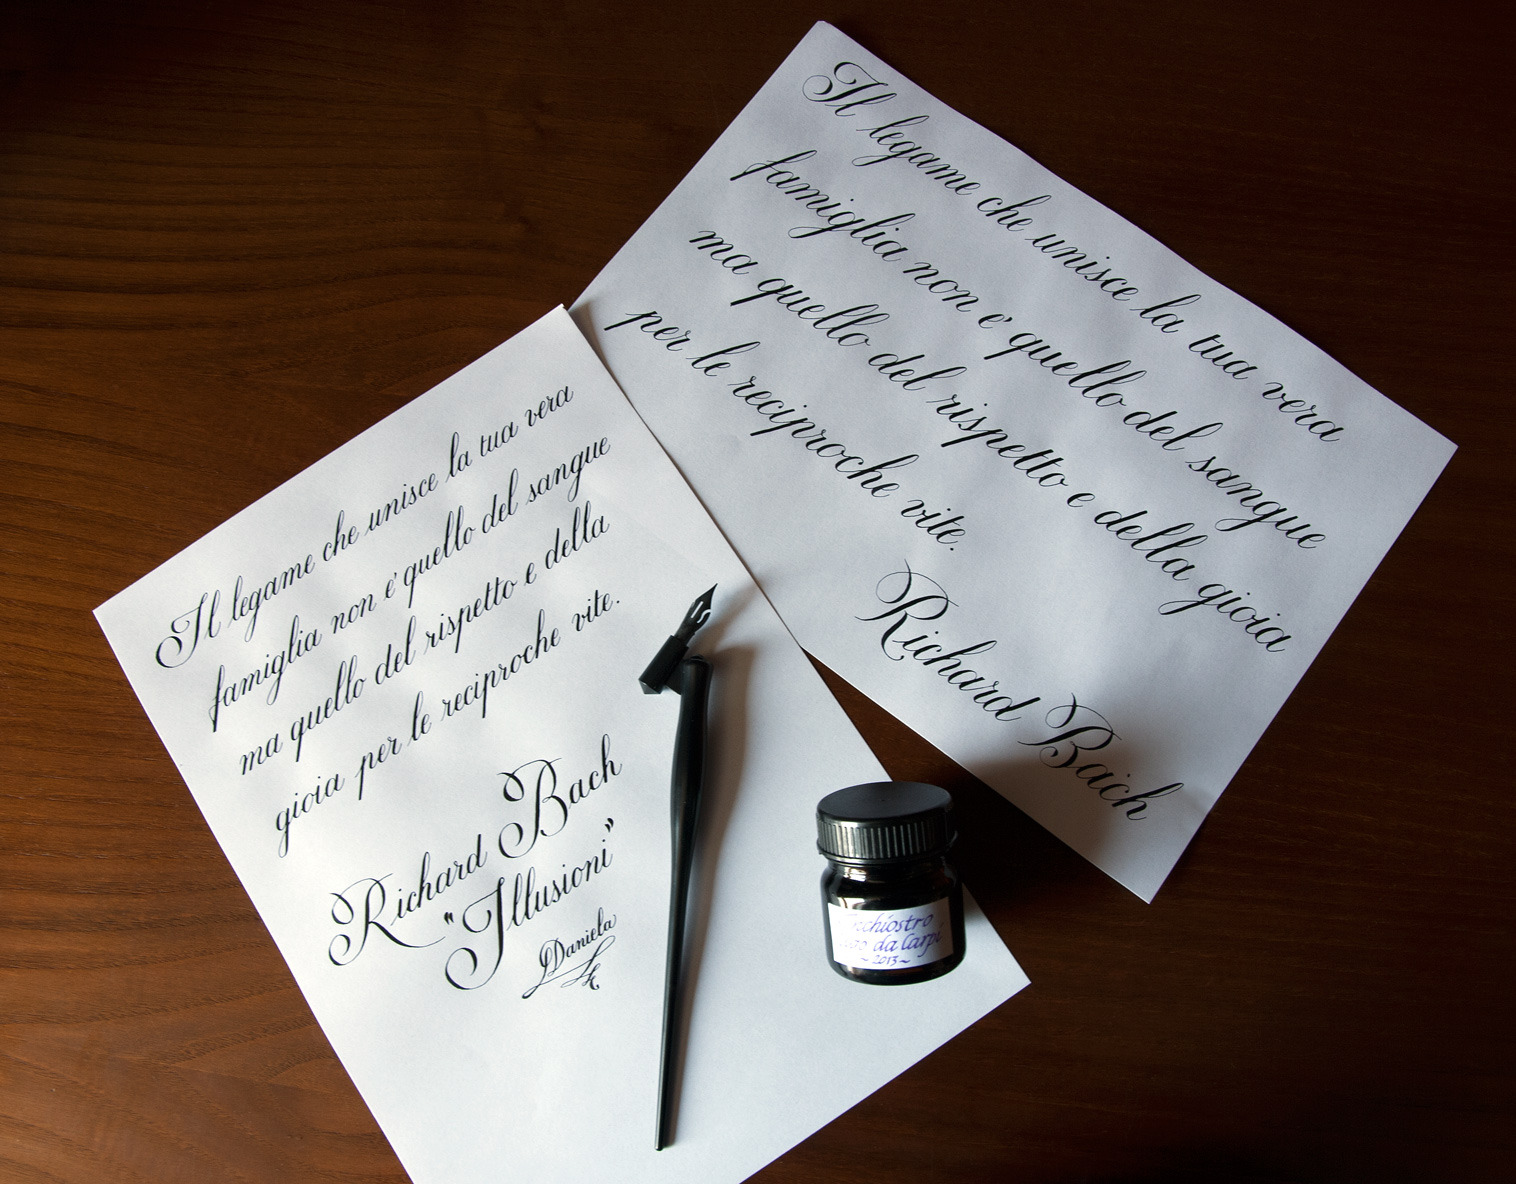 Il legame che unisce la tua vera
famiglia non e' quello del sangue
ma quello del rispetto e della
gioia per le reciproche vite.
Richard Bach
"Illusioni"
Daniela
Il legame che unisce la tua vera
famiglia non e' quello del sangue
ma quello del rispetto e della gioia
per le reciproche vite.
Richard Bach
Inchiostro
da Carpi
~2013~